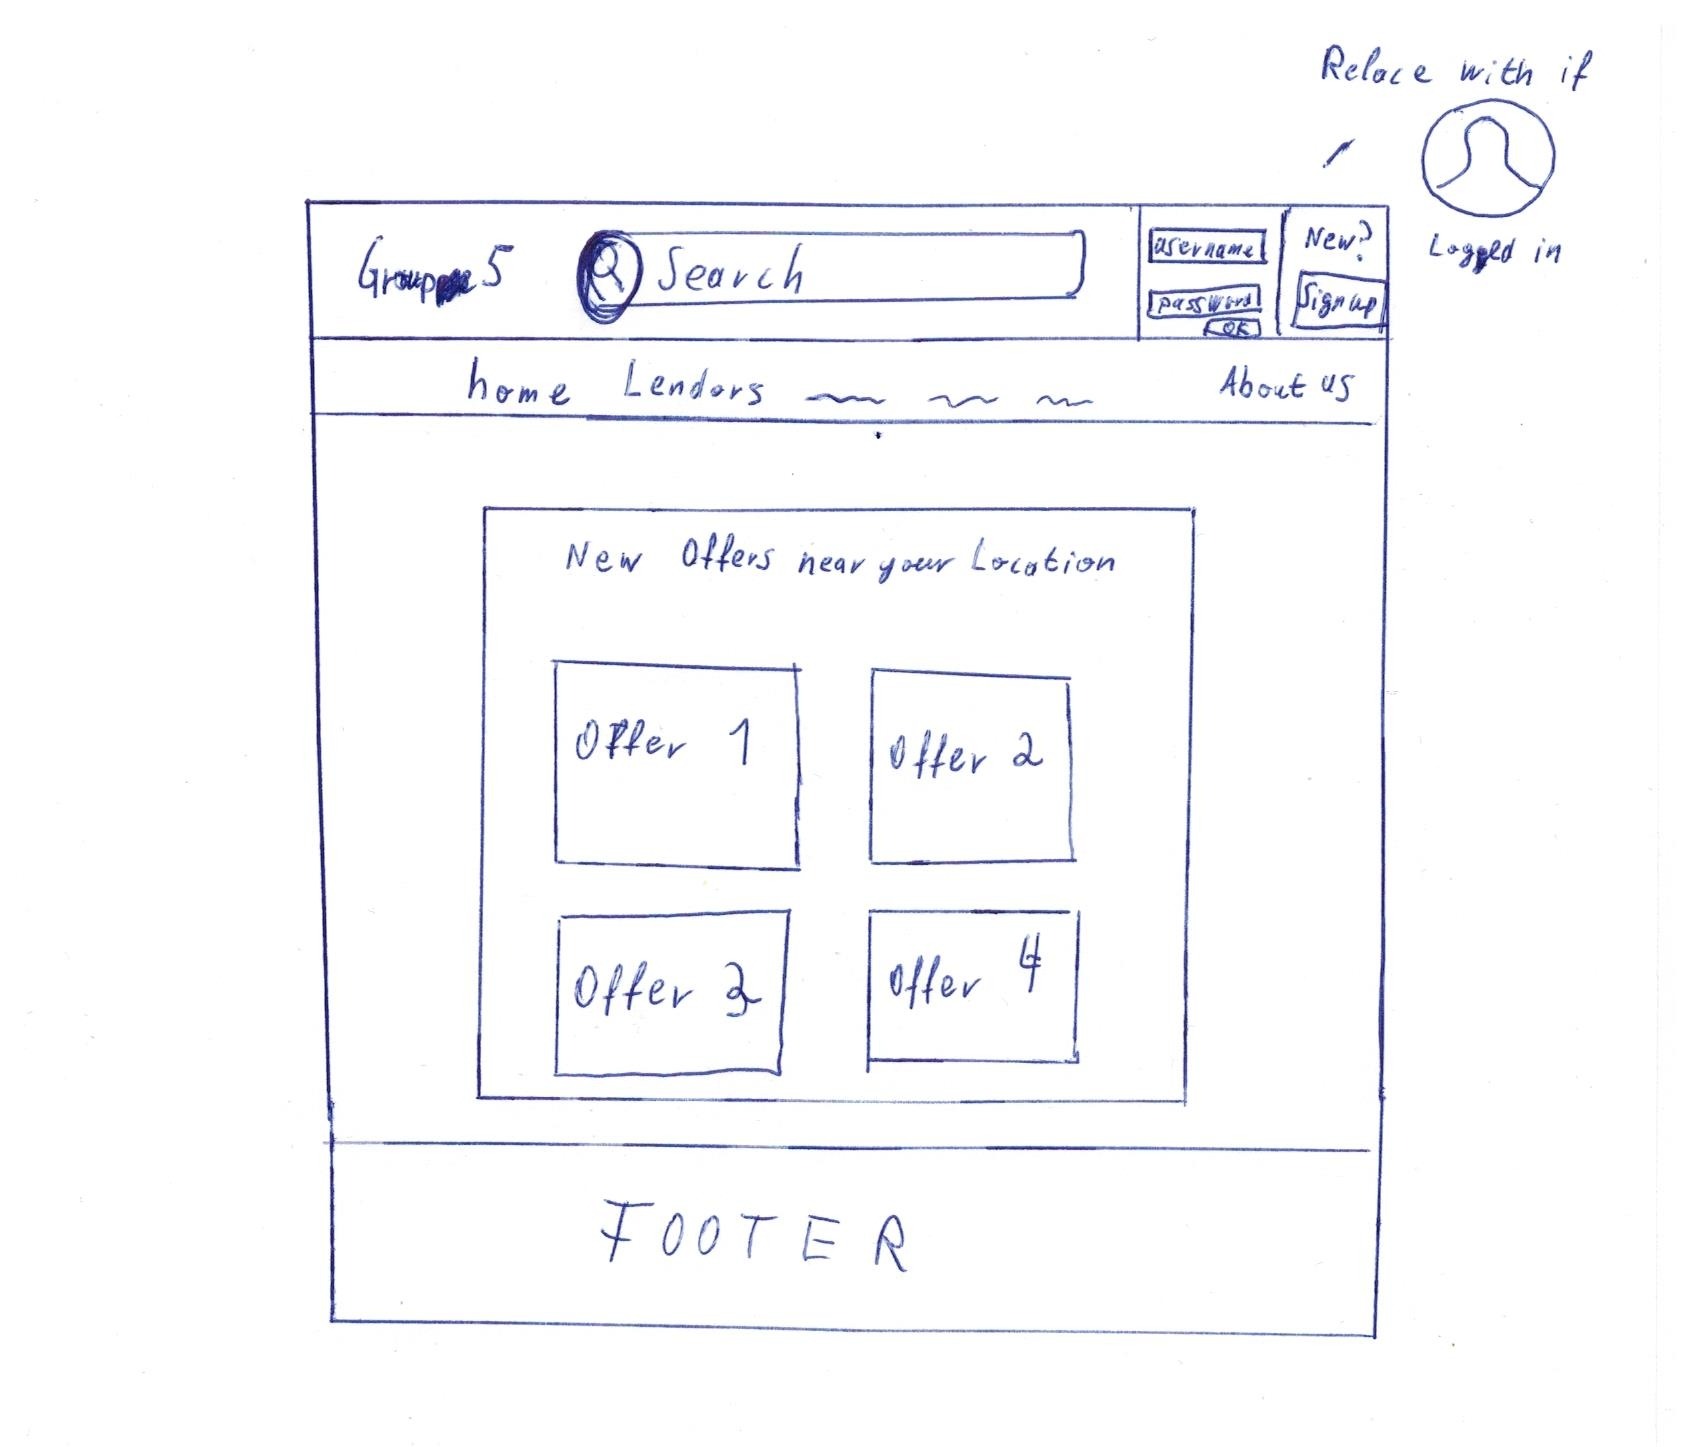 Relace with if
Logged in
Group 5
Search
username
password
OK
New?
Sign up
home Lendors
About us
New Offers near your Location
Offer 1
Offer 2
Offer 3
Offer 4
FOOTER